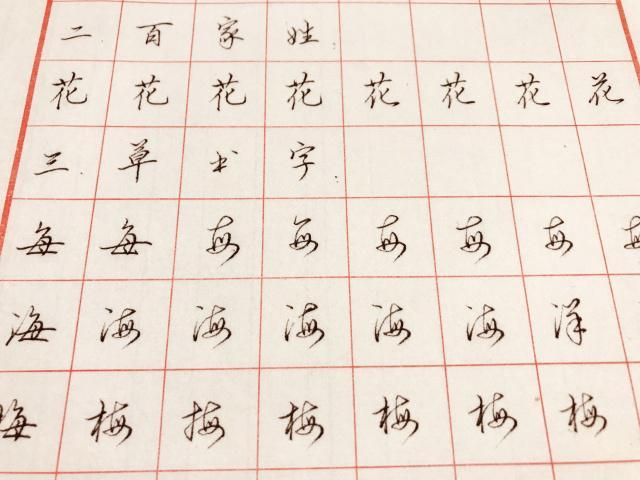 二百家姓
花花花花花花花花
三草书字
每每每每每每每
海海海海海海洋
梅梅梅梅梅梅